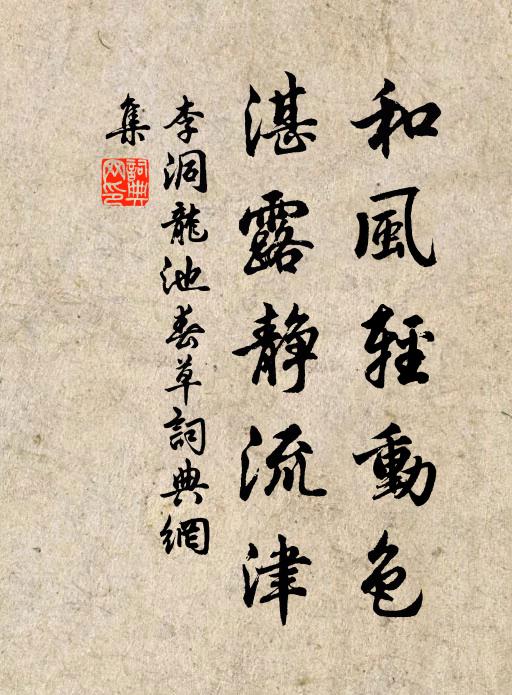 和風輕動色
湛露静流津
李洞龍池春草詞典網
集
詞典
网印